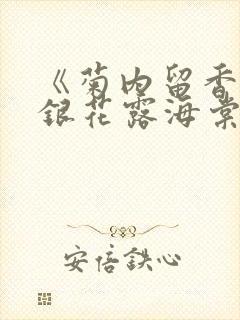 《菊内留香
銀花露海棠
安倍鉄心